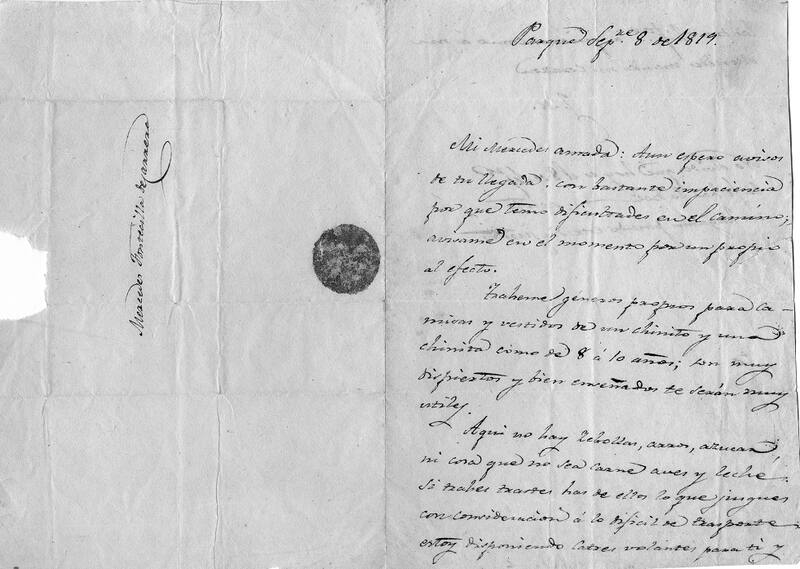 Mercedes Fontesilla de Carrera
Parque Sepre. 8 de 1819.
Mi Mercedes amada: Aun espero avisos
de tu llegada. con bastante impaciencia
por que temo dificultades en el camino;
avisame en el momento por un propio
al efecto.
Traheme géneros propios para ca-
misas y vestidos de un chinito y una
chinita cimo de 8 á 10 años; son muy
dispiertos y bien enseñados te serán muy
utiles.
Aqui no hay zebollas, arros, azucar,
ni cosa que no sea carne aves y leche.
Si trahes trastes has de ellos lo que jusgues
con consideracion á lo dificil de trasporte
estoy disponiendo catres volantes para ti y